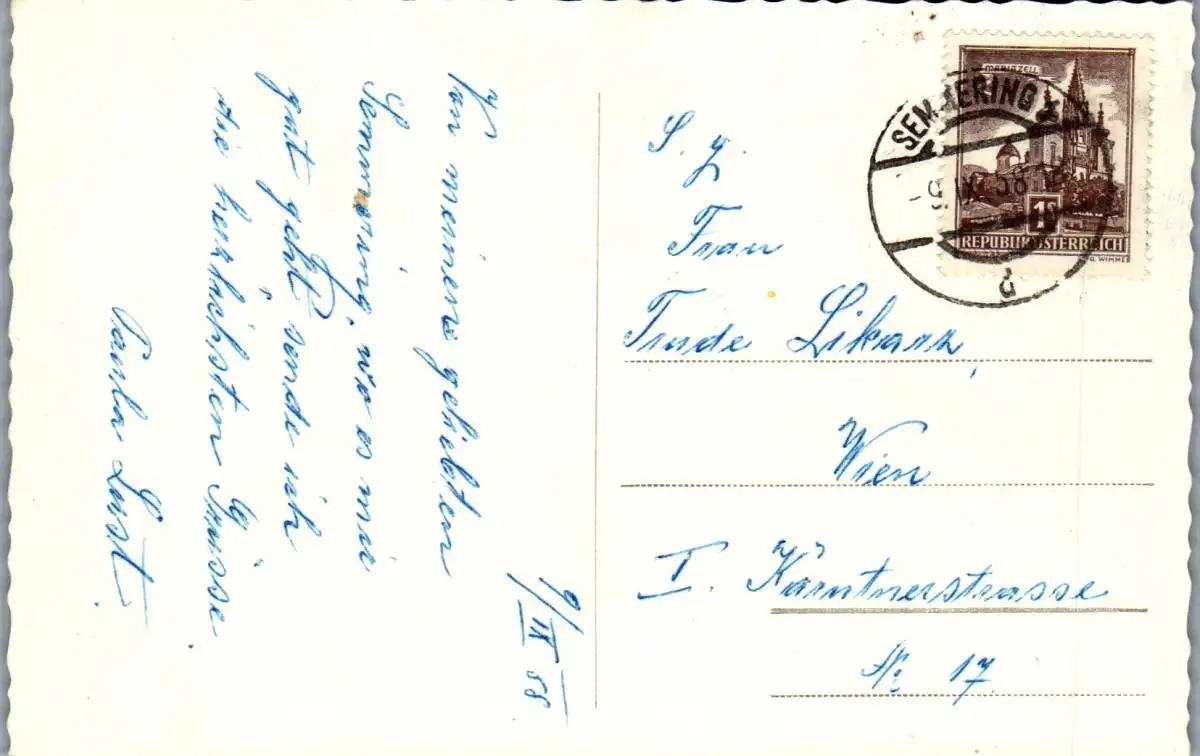 9/IX 58
Von meinem geliebten
Semmering, wo es mir
gut geht sende ich
die herzlichsten Grüsse
Paula Lust
S. g.
Frau
Trude Likarz,
Wien
I. Kärntnerstrasse
№ 17
MARIAZELL
1S
REPUBLIK ÖSTERREICH
G. WIMMER
SEMMERING
-9. IX. 58